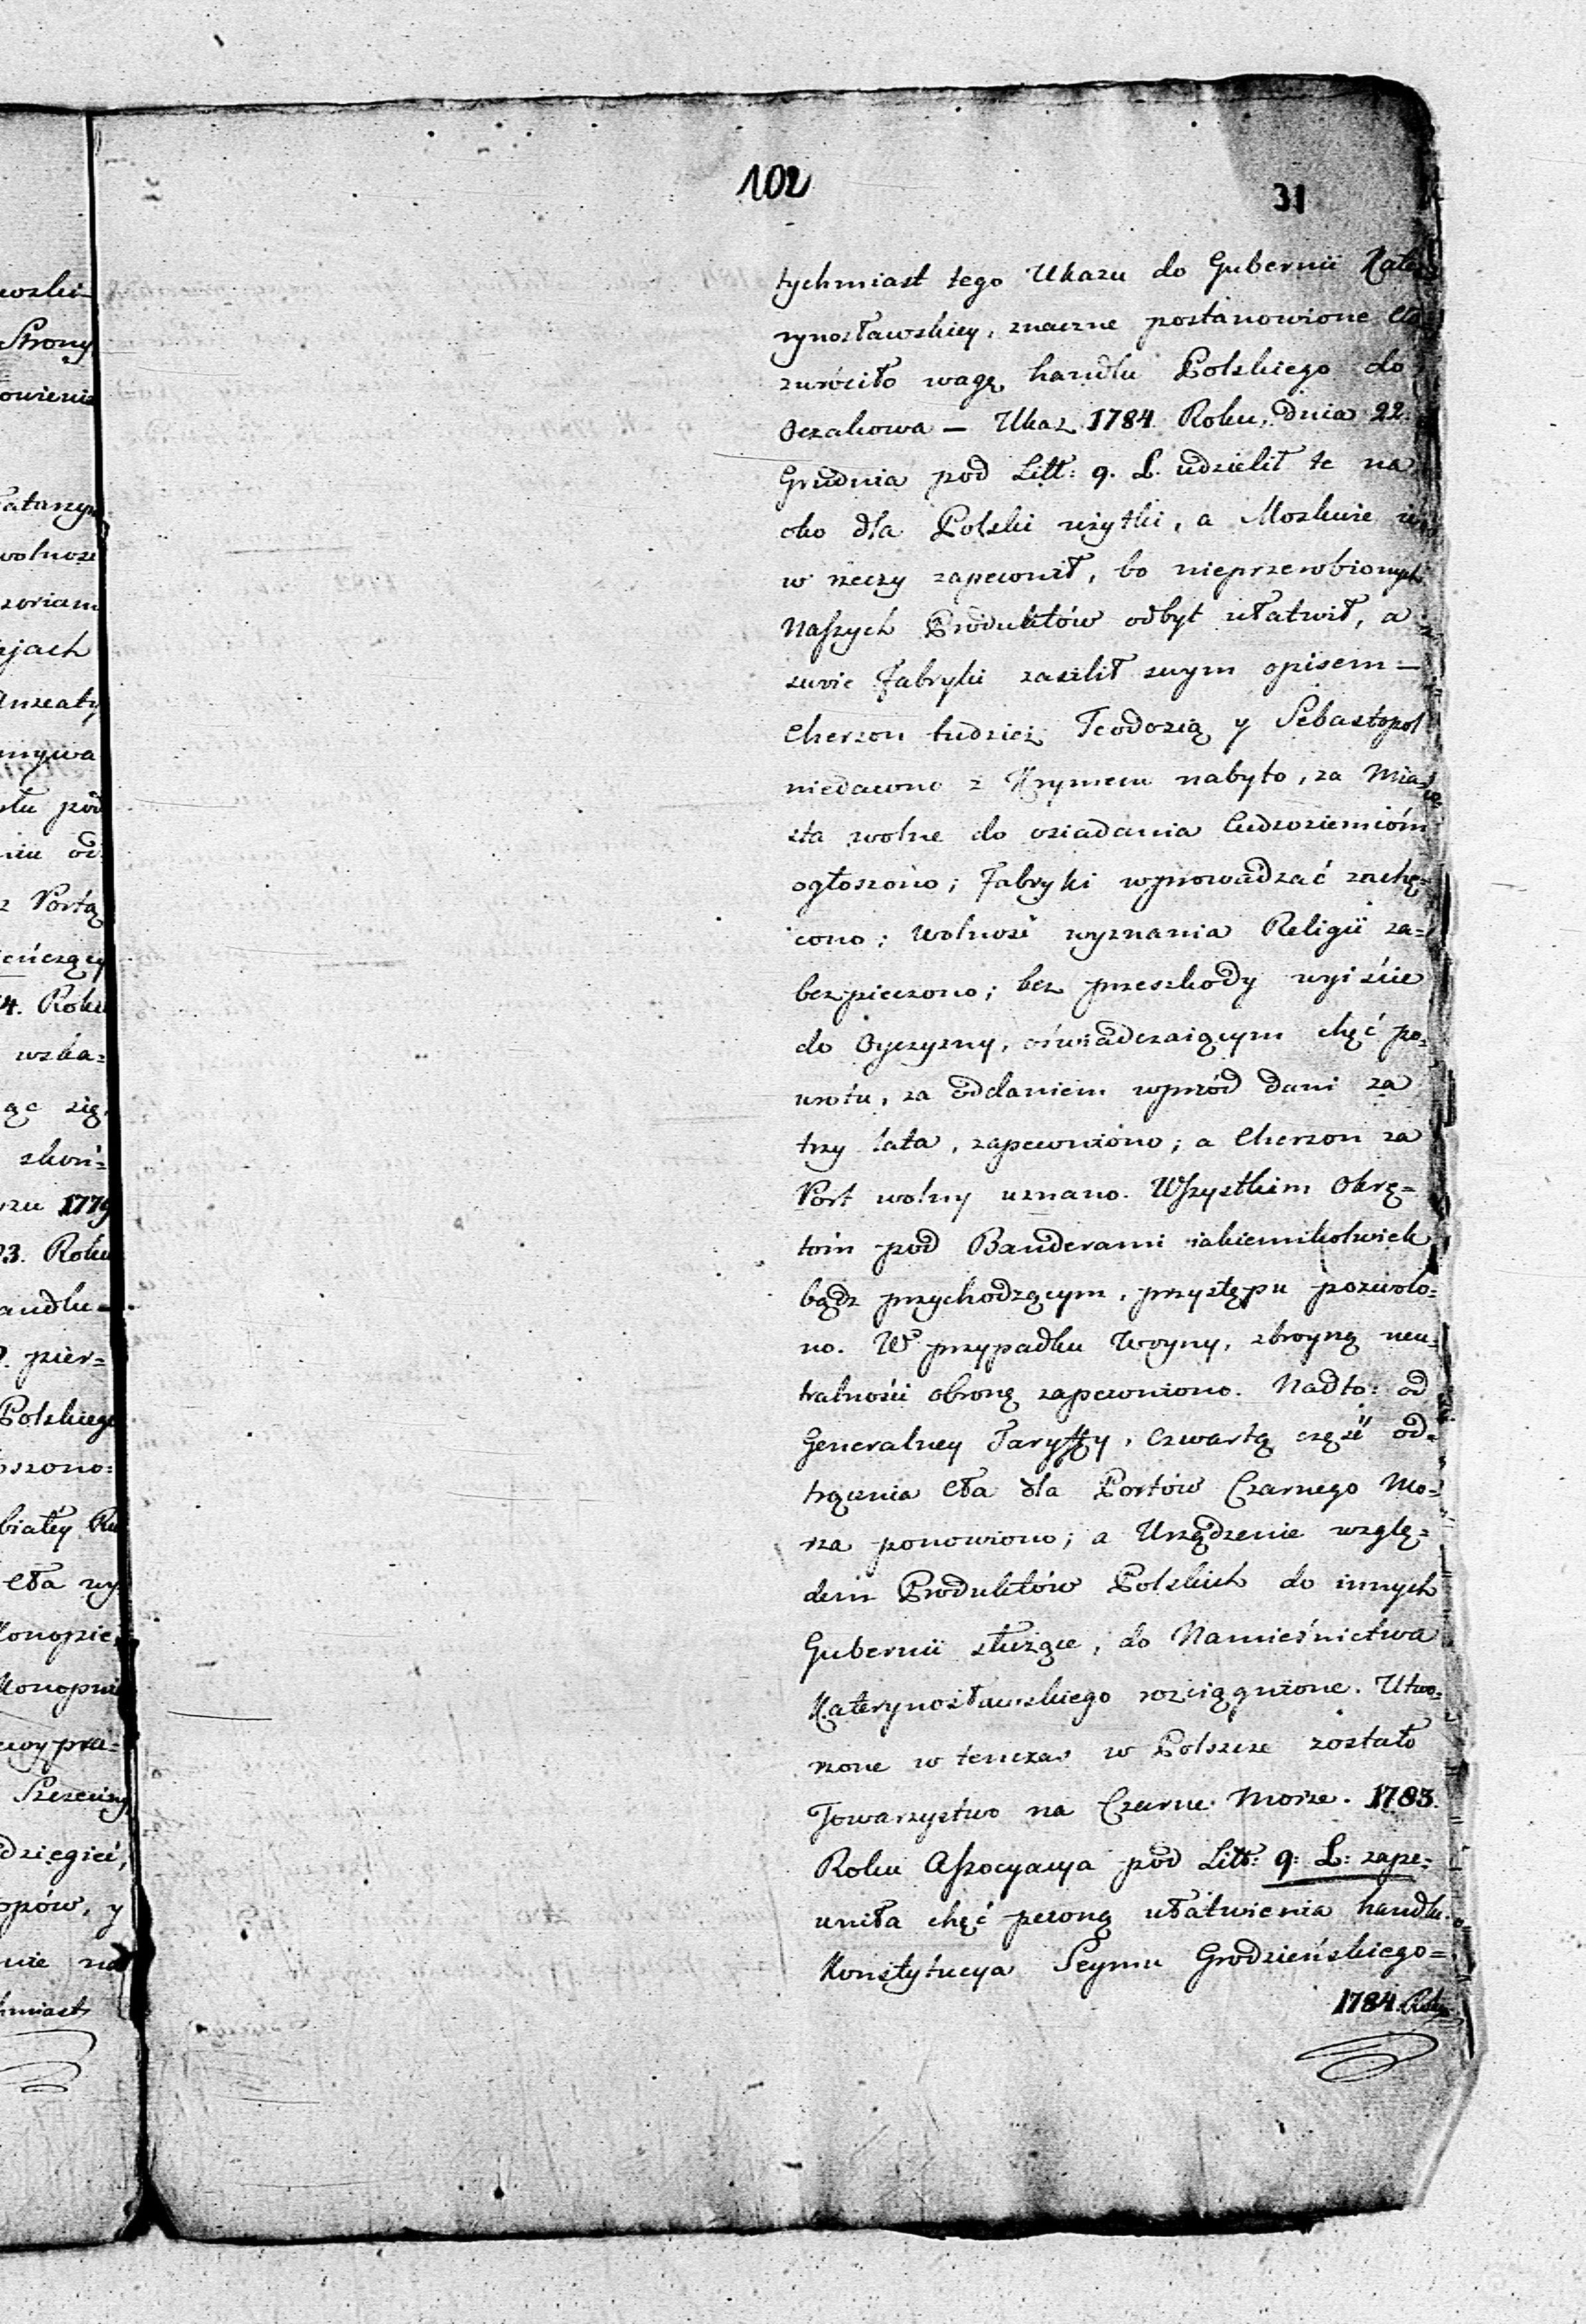 102
31
woski=
Strony
owienie
Tatarzyn
wolnosć
zoriam
ajach
Anseaty
mywa
stu pod
niu od
z Portą
ieńczący
4. Roku
wska=
ąc się
skoń=
rzu 1779
93. Roku
andlu
pier=
Polskiego
szono:
białéy Ru
Cła wy
Konopie
Konopni
wypra=
Szczeciny
dziegieć,
opów, y
nie na
hmiast
tychmiast tego Ukazu do Gubernii Kate=
rynosławskiey, znaczne postanowione Cło
zwróciło wagę handlu Polskiego do
Oczakowa — Ukaz 1784. Roku, Dnia 22.
Grudnia pod Litt: q. L. udzielił te na
oko dla Polski użytki, a Moskwie
w rzeczy zapewnił, bo nieprzerobionych
Naszych Produktów odbyt ułatwił, a
swoie Fabryki zasilił swym opisem —
Cherson tudzież Teodozią y Sebastopol
niedawno z Krymem nabyto, za Mia=
sta wolne do osiadania Cudzoziemióm
ogłoszono; Fabryki wprowadzać zachę=
cono; wolność wyznania Religii za=
bezpieczono; bez przeszkody wyiście
do Oyczyzny, oświadczaiącym chęć po=
wrotu, za oddaniem wprzód Dani za
trzy lata, zapewniono; a Cherson za
Port wolny uznano. Wszystkim Okrę=
tóm pod Banderami iakiemikolwiek
bądz przychodzącym, przystępu pozwolo=
no. W przypadku Woyny, zbroyną neu=
tralności obroną zapewniono. Nadto: od
Generalney Taryffy, czwartą część od=
trącenia Cła dla Portów Czarnego Mo=
rza ponowiono; a Urządzenie wzglę=
dem Produktów Polskich do innych
Gubernii służące, do Namieśnictwa
Katerynosławskiego rozciągnione. Utwo=
rzone w tenczas w Polszcze zostało
Towarzystwo na Czarne Morze. 1783.
Roku Assocyacya pod Litt: q: L: zape=
wniła chęć pewną ułatwienia handlu.
Konstytucya Seymu Grodzieńskiego=
1784. Roku